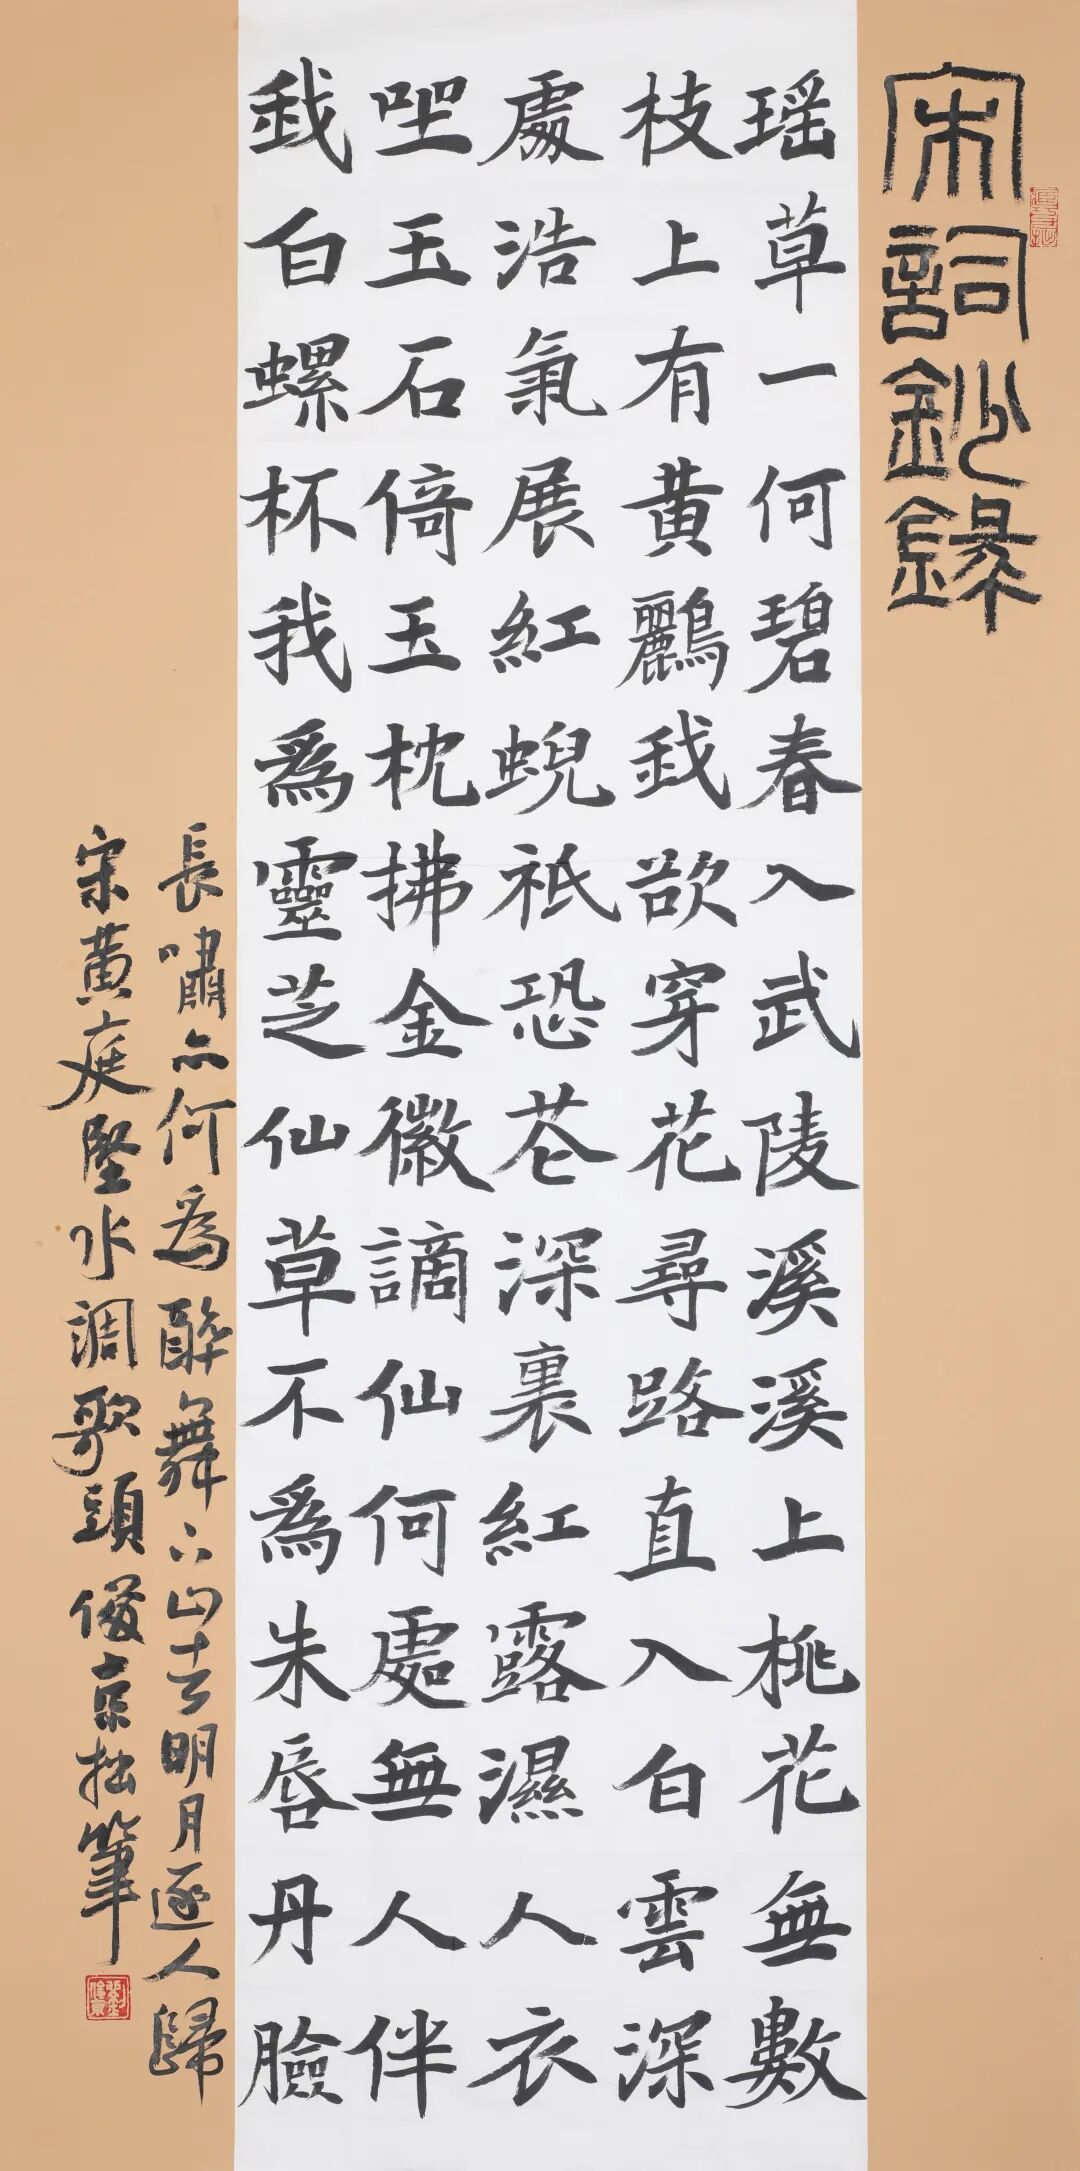 宋詞鈔錄
瑶草一何碧春入武陵溪溪上桃花無數
枝上有黄鸝我欲穿花尋路直入白雲深
處浩氣展紅蜺祇恐花深裏紅露濕人衣
坐玉石倚玉枕拂金徽謫仙何處無人伴
我白螺杯我為靈芝仙草不為朱唇丹臉
長嘯亦何為醉舞下山去明月逐人歸
宋黄庭堅水調歌頭俊京拙筆